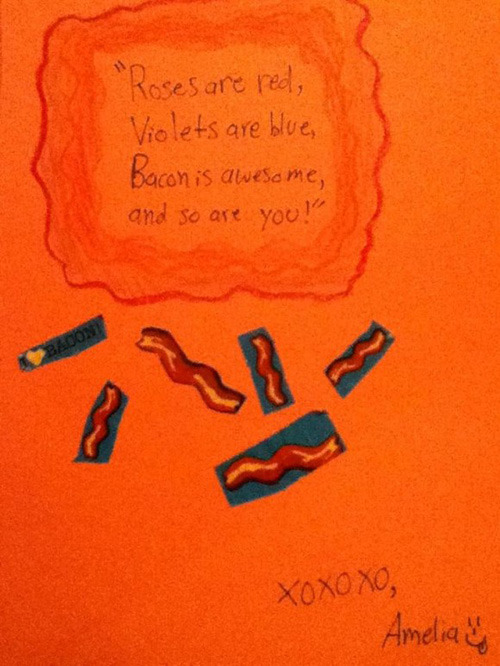 "Roses are red,
Violets are blue,
Bacon is awesome,
and so are you!"
I 💛 BACON!
XOXOXO,
Amelia